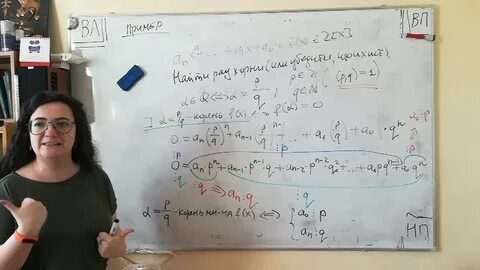 ВЛ
Пример
ВП
aₙxⁿ + ... + a₁x + a₀ = f(x) ∈ ℤ[x]
Найти рац корни (или убедиться, что их нет).
α ∈ ℚ ⟺ α = p/q ; p ∈ ℤ q ∈ ℕ (p,q) = 1
] α = p/q - корень f(x) f(α) = 0
0 = aₙ(p/q)ⁿ + aₙ₋₁(p/q)ⁿ⁻¹ + ... + a₁(p/q) + a₀ | · qⁿ
a₀ ⋮ p
⋮p ⋮p
0 = aₙpⁿ + aₙ₋₁ · pⁿ⁻¹ · q + aₙ₋₂ · pⁿ⁻² · q² + ... + a₁pqⁿ⁻¹ + a₀qⁿ
⋮q ⋮q ⇒ aₙ ⋮ q ⋮q
α = p/q - корень мн-на f(x) ⟺ { a₀ ⋮ p
aₙ ⋮ q
НП